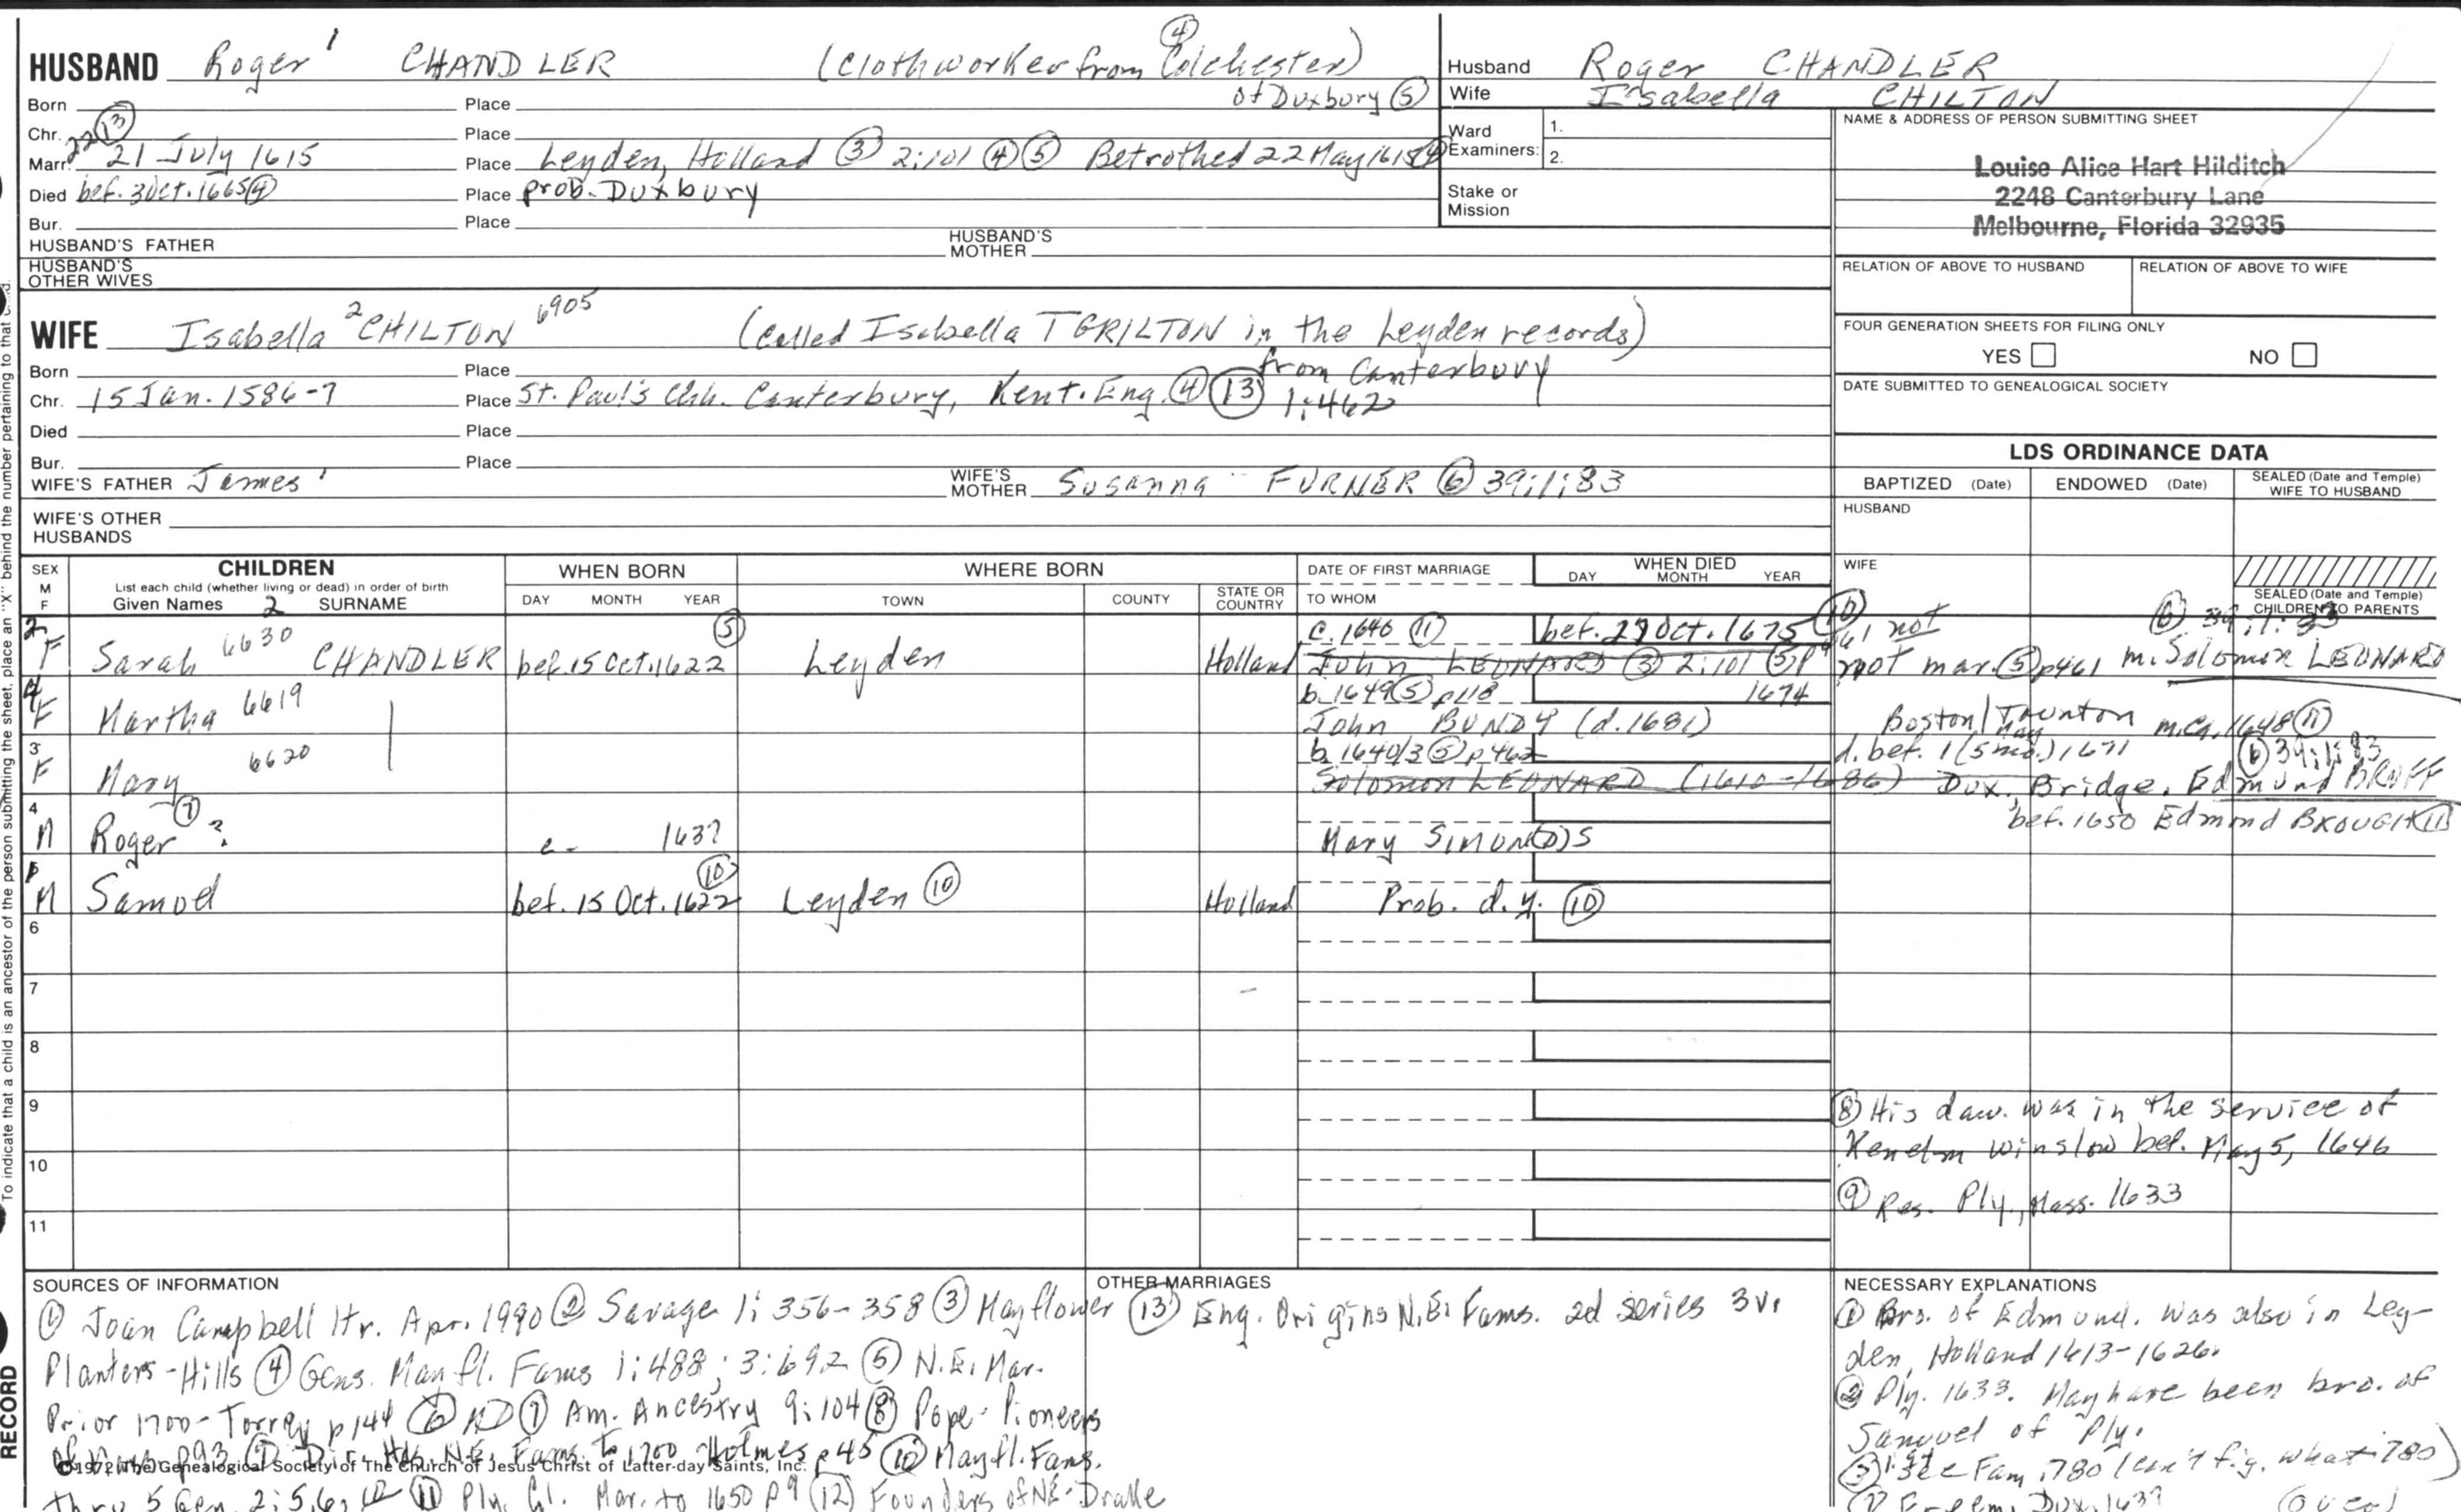 HUSBAND Roger 1 CHANDLER (Clothworker from Colchester) ④
of Duxbury ⑤
Born Place
Chr. Place
Marr. 22 ⑬ 21 July 1615 Place Leyden, Holland ③ 2:101 ④ ⑤ Betrothed 22 May 1615 ④
Died bef. 3 Oct. 1665 ④ Place prob. Duxbury
Bur. Place
HUSBAND'S FATHER HUSBAND'S MOTHER
HUSBAND'S OTHER WIVES
Husband Roger CHANDLER
Wife Isabella CHILTON
Ward Examiners: 1. 2.
Stake or Mission
NAME & ADDRESS OF PERSON SUBMITTING SHEET
Louise Alice Hart Hilditch
2248 Canterbury Lane
Melbourne, Florida 32935
RELATION OF ABOVE TO HUSBAND RELATION OF ABOVE TO WIFE
FOUR GENERATION SHEETS FOR FILING ONLY
YES NO
DATE SUBMITTED TO GENEALOGICAL SOCIETY
WIFE Isabella 2 CHILTON 6905 (called Isabella TGRILTON in the Leyden records)
from Canterbury
Born Place
Chr. 15 Jan. 1586-7 Place St. Paul's Chh. Canterbury, Kent. Eng. ④ ⑬ 1:462
Died Place
Bur. Place
WIFE'S FATHER James 1 WIFE'S MOTHER Susanna FURNER ⑥ 39:1:83
WIFE'S OTHER HUSBANDS
LDS ORDINANCE DATA
BAPTIZED (Date) ENDOWED (Date) SEALED (Date and Temple) WIFE TO HUSBAND
HUSBAND
WIFE
SEALED (Date and Temple) CHILDREN TO PARENTS
SEX M F CHILDREN List each child (whether living or dead) in order of birth Given Names 2 SURNAME
WHEN BORN DAY MONTH YEAR WHERE BORN TOWN COUNTY STATE OR COUNTRY
DATE OF FIRST MARRIAGE TO WHOM WHEN DIED DAY MONTH YEAR
2 c. 1640 ⑪ bef. 27 Oct. 1675 ⑩ not ⑥ 39:1:83
F Sarah 6630 CHANDLER bef. 15 Oct. 1622 ⑤ Leyden Holland John LEONARD ③ 2:101 ⑤ not mar. ⑤ p461 m. Solomon LEONARD
4 b. 1649 ⑤ p118 1674
F Martha 6619 John BUNDY (d. 1681) Boston/Taunton m. ca. 1648 ⑪
3 b. 1640/3 ⑤ p462 d. bef. 1 (5 mo.) May 1671 ⑥ 39:1:83
F Mary 6620 Solomon LEONARD (1610-1686) Dux. Bridge. Edmund BRUFF
bef. 1650 Edmond BROUGH ⑪
4
M Roger ⑦ ? c. 1637 Mary SIMON(D)S
5
M Samuel bef. 15 Oct. 1622 ⑩ Leyden ⑩ Holland Prob. d.y. ⑩
6
7
8
9
10
11
⑧ His dau. was in the service of
Kenelm Winslow bef. May 5, 1646
⑨ Res. Ply., Mass. 1633
SOURCES OF INFORMATION
① Joan Campbell ltr. Apr. 1990 ② Savage 1: 356-358 ③ Mayflower
Planters-Hills ④ Gens. Mayfl. Fams 1:488; 3:692 ⑤ N.E. Mar.
Prior 1700-Torrey p144 ⑥ MD ⑦ Am. Ancestry 9:104 ⑧ Pope-Pioneers
of Mass p93 ⑨ Dir. Hds N.E. Fams. to 1700 Holmes p45 ⑩ Mayfl. Fams.
©1972 The Genealogical Society of The Church of Jesus Christ of Latter-day Saints, Inc.
thru 5 Gen. 2:5,6, ⑪ Ply. Col. Mar. to 1650 p9 ⑫ Founders of NE-Drake
OTHER MARRIAGES
⑬ Eng. Origins N.E. Fams. 2d series 3v.
NECESSARY EXPLANATIONS
① Bro. of Edmund. Was also in Ley-
den, Holland 1613-1626.
② Ply. 1633. May have been bro. of
Samuel of Ply.
③ See Fam. 780 (can't fig. what 780)
Freem. Dux. 1637 (over)
To indicate that a child is an ancestor of the person submitting the sheet, place an "X" behind the number pertaining to that child.
RECORD